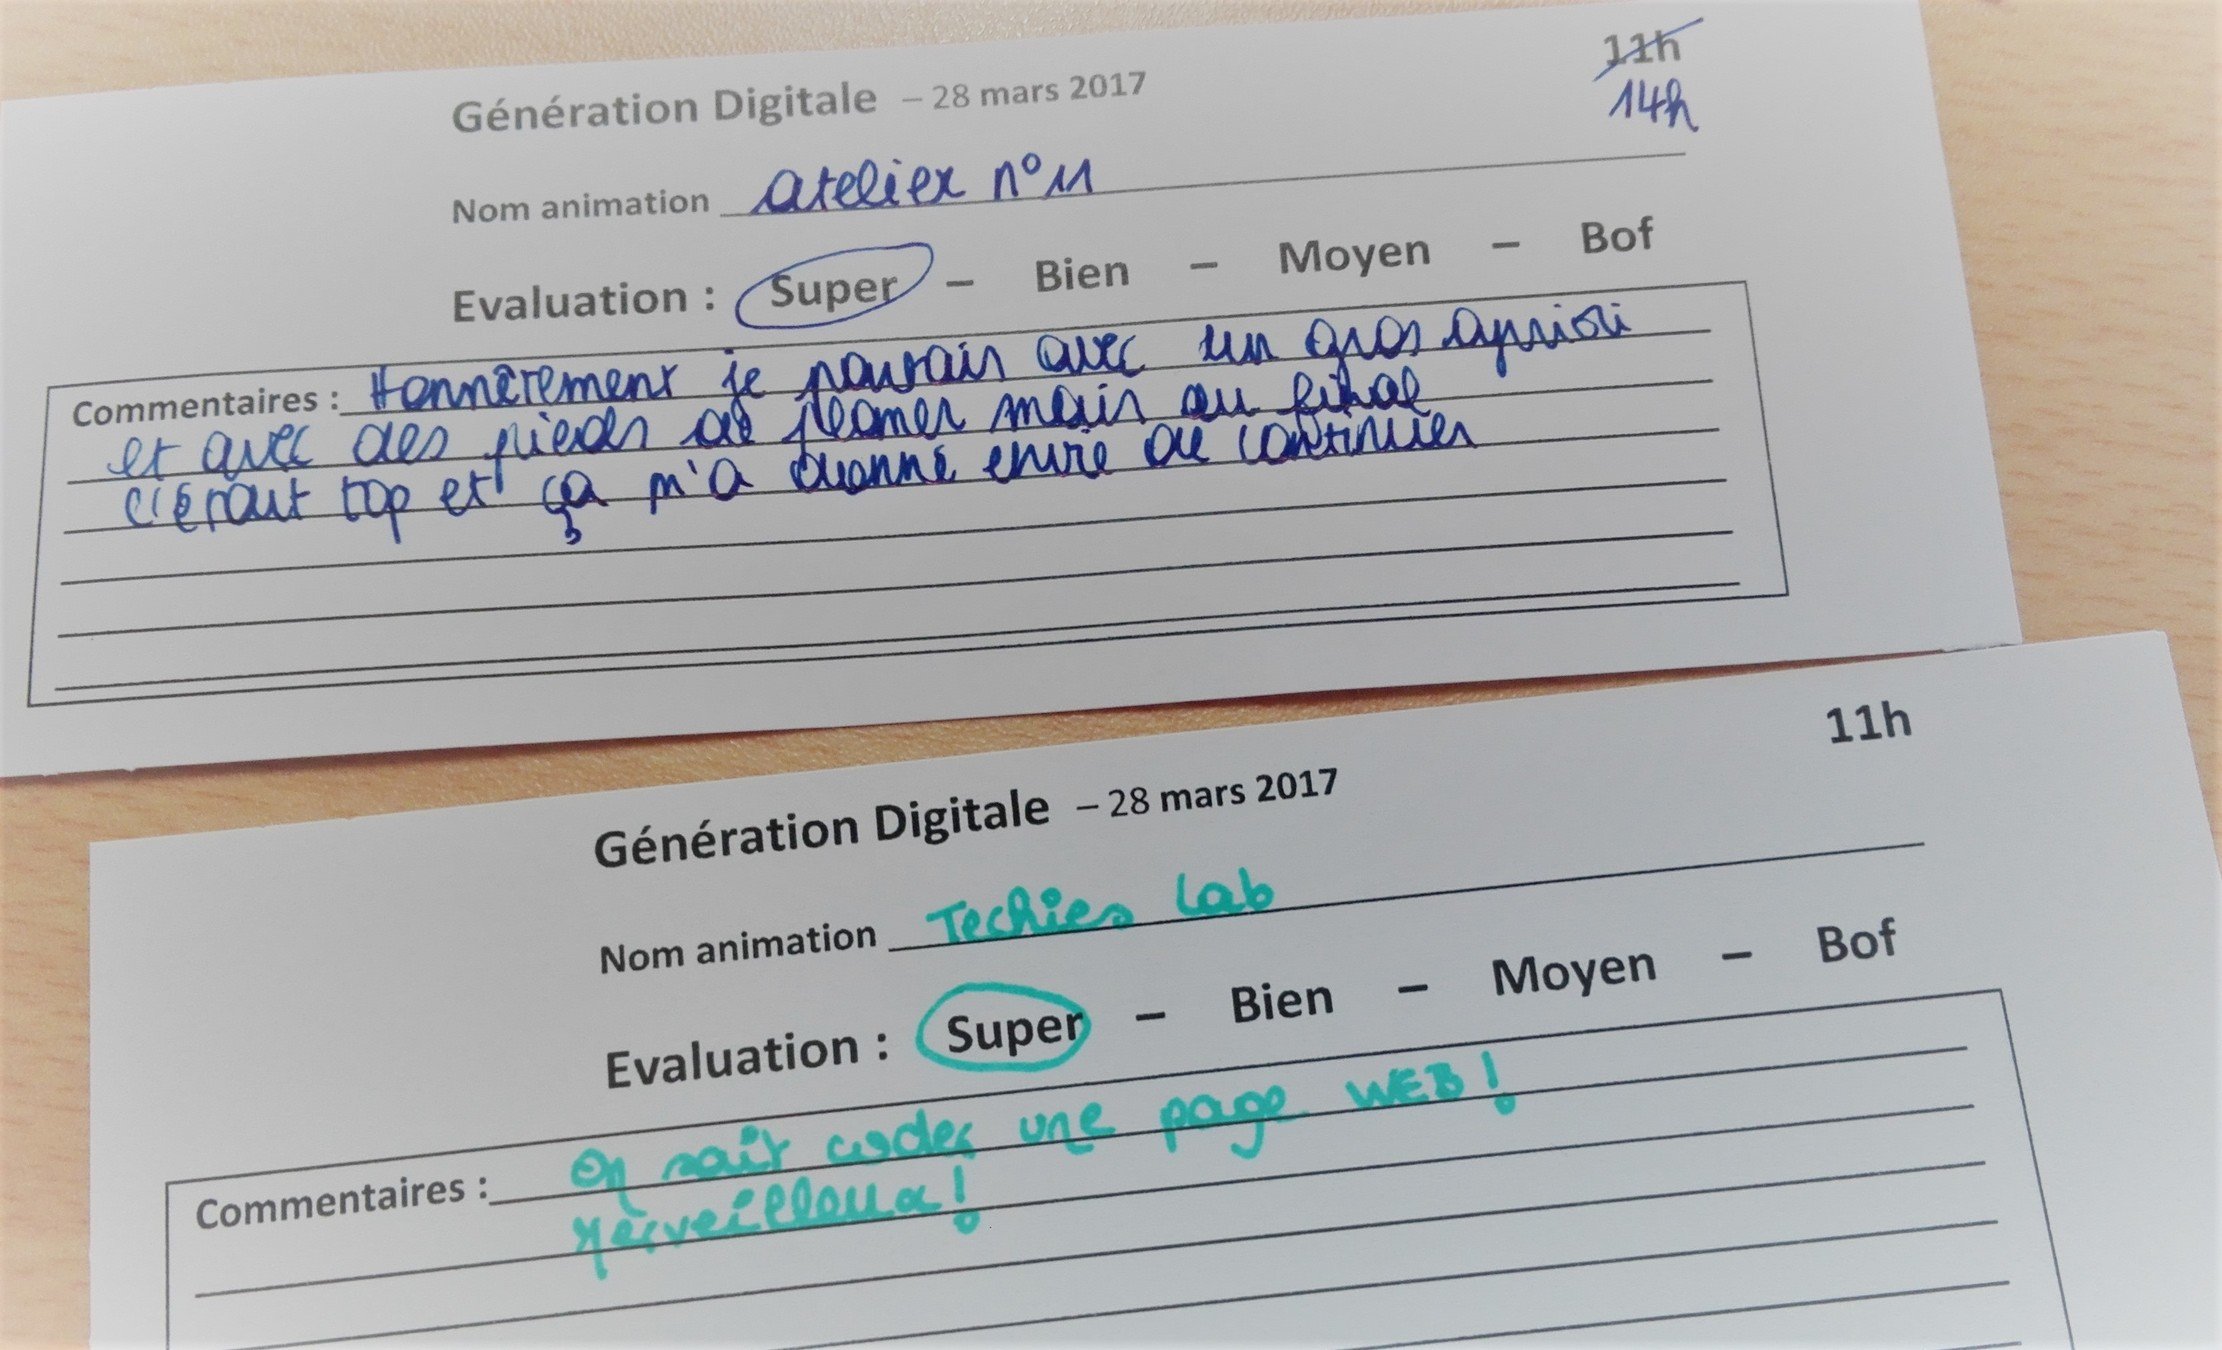 11h
14h
Génération Digitale – 28 mars 2017
Nom animation atelier n°11
Evaluation : Super – Bien – Moyen – Bof
Commentaires : Honnêtement je partais avec un gros apriori
et avec des pieds de plomb mais au final
c'était top et ça m'a donné envie de continuer
11h
Génération Digitale – 28 mars 2017
Nom animation Techies Lab
Evaluation : Super – Bien – Moyen – Bof
Commentaires : On sait coder une page WEB !
Merveilleux !